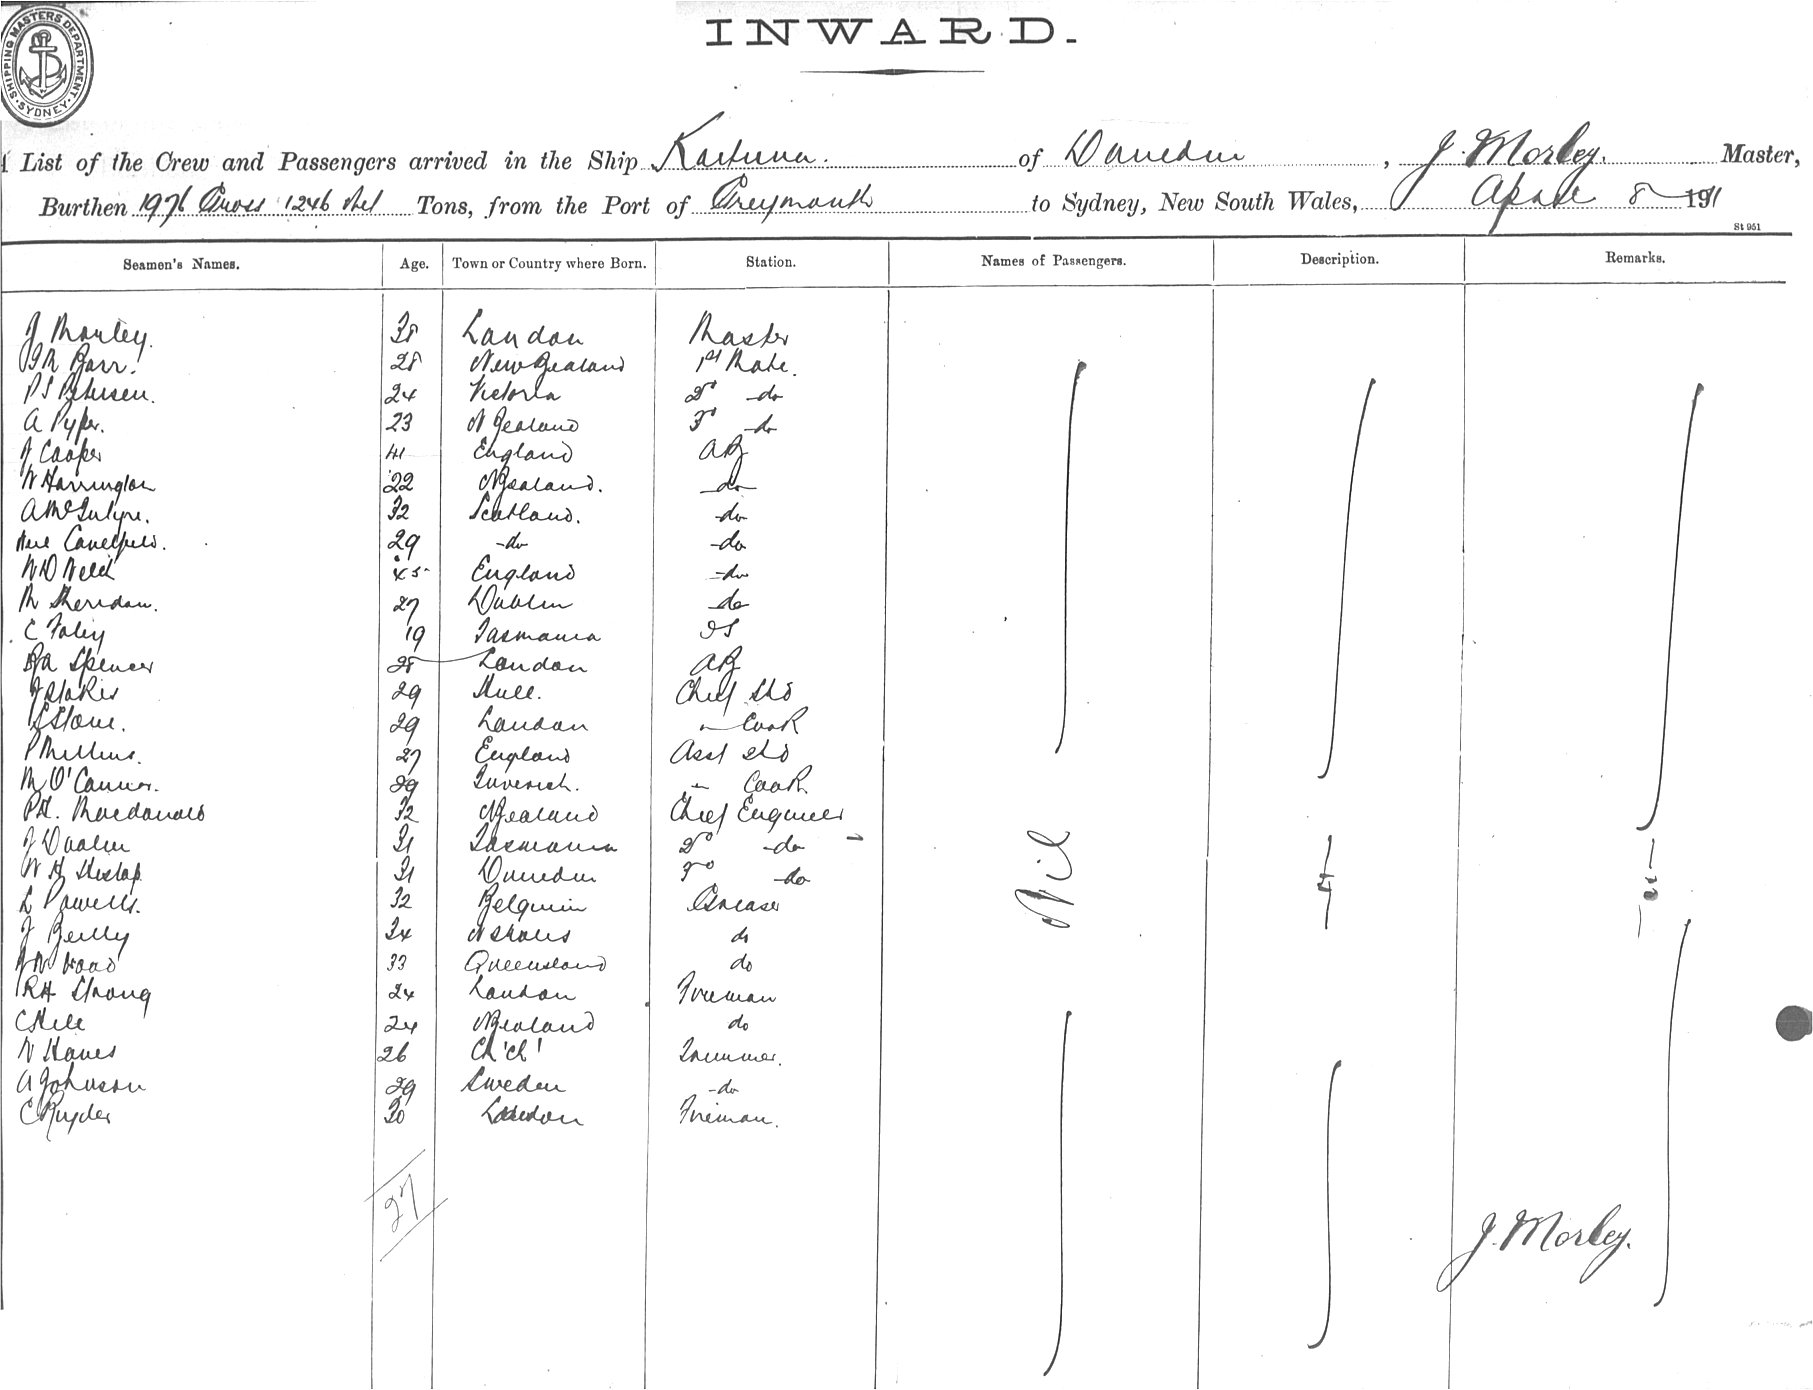 SHIPPING MASTERS DEPARTMENT · SYDNEY ·
INWARD.
List of the Crew and Passengers arrived in the Ship Kaituna. of Dunedin, J. Morley. Master,
Burthen 1976 Gross 1246 Net Tons, from the Port of Greymouth to Sydney, New South Wales, 8 1911
St 951
Seamen's Names. Age. Town or Country where Born. Station. Names of Passengers. Description. Remarks.
J Morley. 38 London Master
Barr. 28 New Zealand 1st Mate.
P S Petersen. 24 Victoria 2d do
A Pyper. 23 N Zealand 3d do
J Cooper 41 England AB
W Harrington 22 N Zealand. do
A McIntyre. 32 Scotland. do
29 do do
W D Welch 45 England do
M Sheridan. 27 Dublin do
C Foley 19 Tasmania OS
Spencer 28 London AB
J Stokes 29 Hull. Chief Std
S Stone. 29 London " Cook
P Mullins. 27 England Asst Std
M O'Connor. 29 " Cook
Macdonald 32 N Zealand Chief Engineer
J 31 Tasmania 2d do
W H Hislop 31 Dunedin 3d do
L Powells. 32 Belguim Greaser
J Reilly 34 N S Wales do
Wood 33 Queensland do
R H Strong 24 London Fireman
C Hill 24 N Zealand do
W Hawes 26 Ch'ch' Trimmer.
A Johnson 29 Sweden do
C Ruyder 30 London Fireman.
Nil
27
J. Morley.